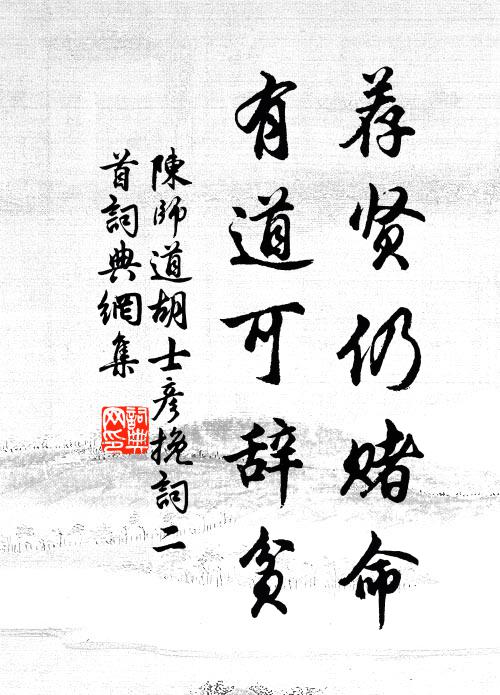 荐贤仍赌命
有道可辞贫
陳師道胡士彦挽詞二
首詞典網集
詞典
网印